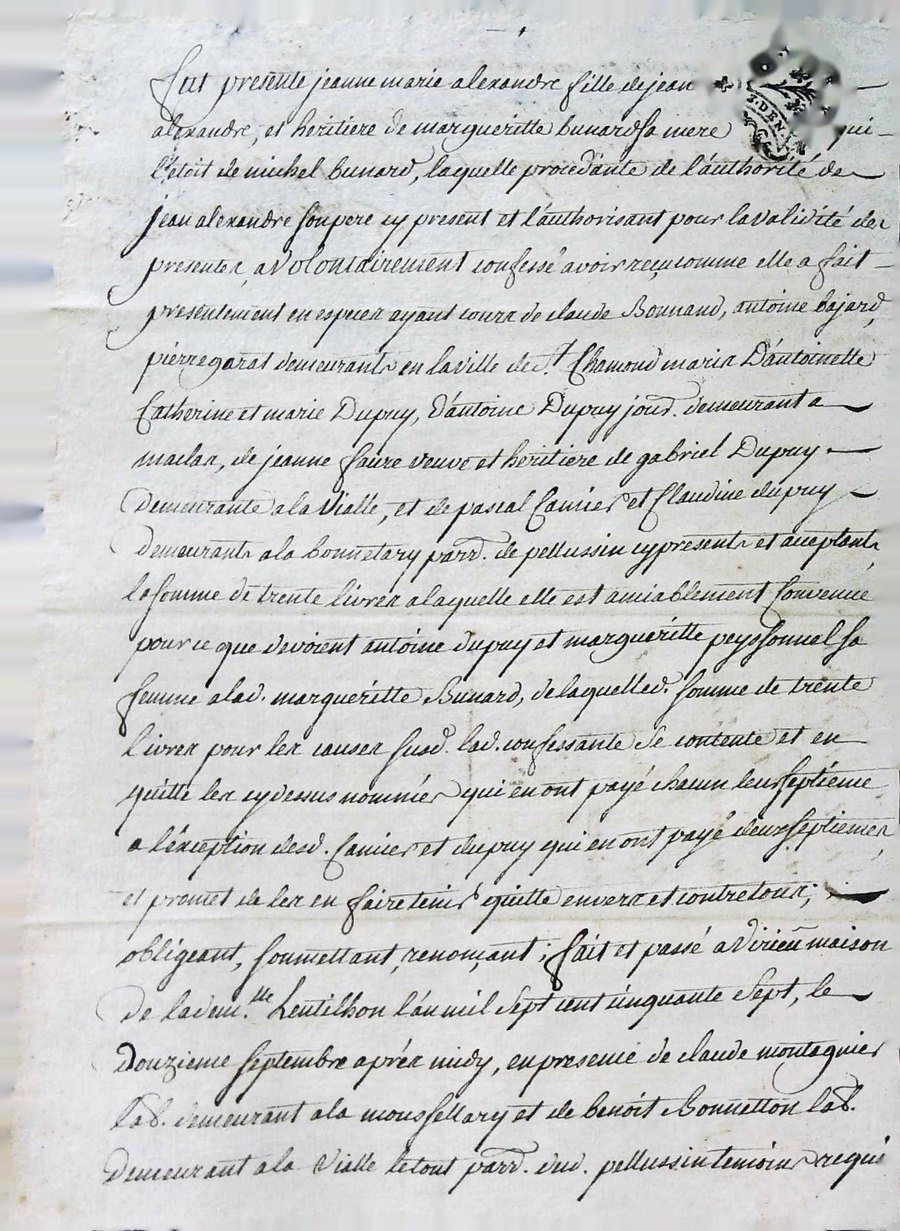 fut presente jeanne marie alexandre fille de jean
alexandre, et heritiere de margueritte bunard sa mere qui
l'etoit de michel bunard, laquelle procedante de l'authorité de
jean alexandre son pere cy present et l'authorisant pour la validité des
presentes, a volontairement confessé avoir reçu comme elle a fait
presentement en especes ayant cours de claude Bonnand, antoine bajard,
pierre garat demeurants en la ville de St. Chamond maris D'antoinette
Catherine et marie Dupuy, d'antoine Dupuy jourd. demeurant a
maclas, de jeanne faure veuve et heritiere de gabriel Dupuy
demeurante a la Vialle, et de pascal Camier et Claudine dupuy
demeurants a la bonnetary parr. de pellussin cy presents et acceptants
la somme de trente livres a laquelle elle est amiablement Convenue
pour ce que devoient antoine dupuy et margueritte peyssonnel sa
femme a lad. margueritte Bunard, de laquelled. somme de trente
livres pour les causes susd. lad. confessante se contente et en
quitte les cy dessus nommés qui en ont payé chacun leur septième
a l'exception desd. Camier et dupuy qui en ont payé deux septiemes,
et promet de les en faire tenir quitte envers et contre tous;
obligeant, soumettant, renonçant; fait et passé a Virieu maison
de la dem.lle Lentilhon l'an mil sept cent cinquante sept, le
Douzieme septembre après midy, en presence de claude montagnier
lab. demeurant a la moussellary et de benoit Bonnetton lab.
demeurant a la Vialle le tout parr. dud. pellussin temoins requis
S. DENI